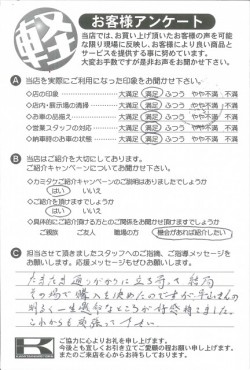 軽
お客様アンケート
当店では、お買い上げ頂いたお客様の声を可能
な限り現場に反映し、お客様により良い商品と
サービスを提供する事に努めています。
大変お手数ですが是非お声をお聞かせ下さい。
A 当店を実際にご利用になった印象をお聞かせ下さい。
◇店の印象 大満足 満足 ふつう やや不満 不満
◇店内・展示場の清掃 大満足 満足 ふつう やや不満 不満
◇お車の品揃え 大満足 満足 ふつう やや不満 不満
◇営業スタッフの対応 大満足 満足 ふつう やや不満 不満
◇納車時のお車の状態 大満足 満足 ふつう やや不満 不満
B 当店はご紹介を大切にしております。
ご紹介キャンペーンについてお聞かせ下さい。
◇カミタケご紹介キャンペーンのご説明はありましたでしょうか
はい いいえ
◇ご紹介を頂けますでしょうか
はい いいえ
◇具体的にご紹介頂ける方とのご関係をお聞かせ頂けますでしょうか
ご親族 ご友人 職場の方 機会があれば紹介したい
C 担当させて頂きましたスタッフへのご指摘、ご指導メッセージを
お願いします。応援メッセージもぜひお願いします。
たまたま通りがかりに立ち寄って 結局
その場で購入を決めたのですが
明るく一生懸命なところが好感持てました。
これからも頑張って下さい
K
ご協力に心よりお礼を申し上げます。
今後とも宜しくお引き立てご愛顧の程お願い申し上げます。
またのご来店を心からお待ちしております。